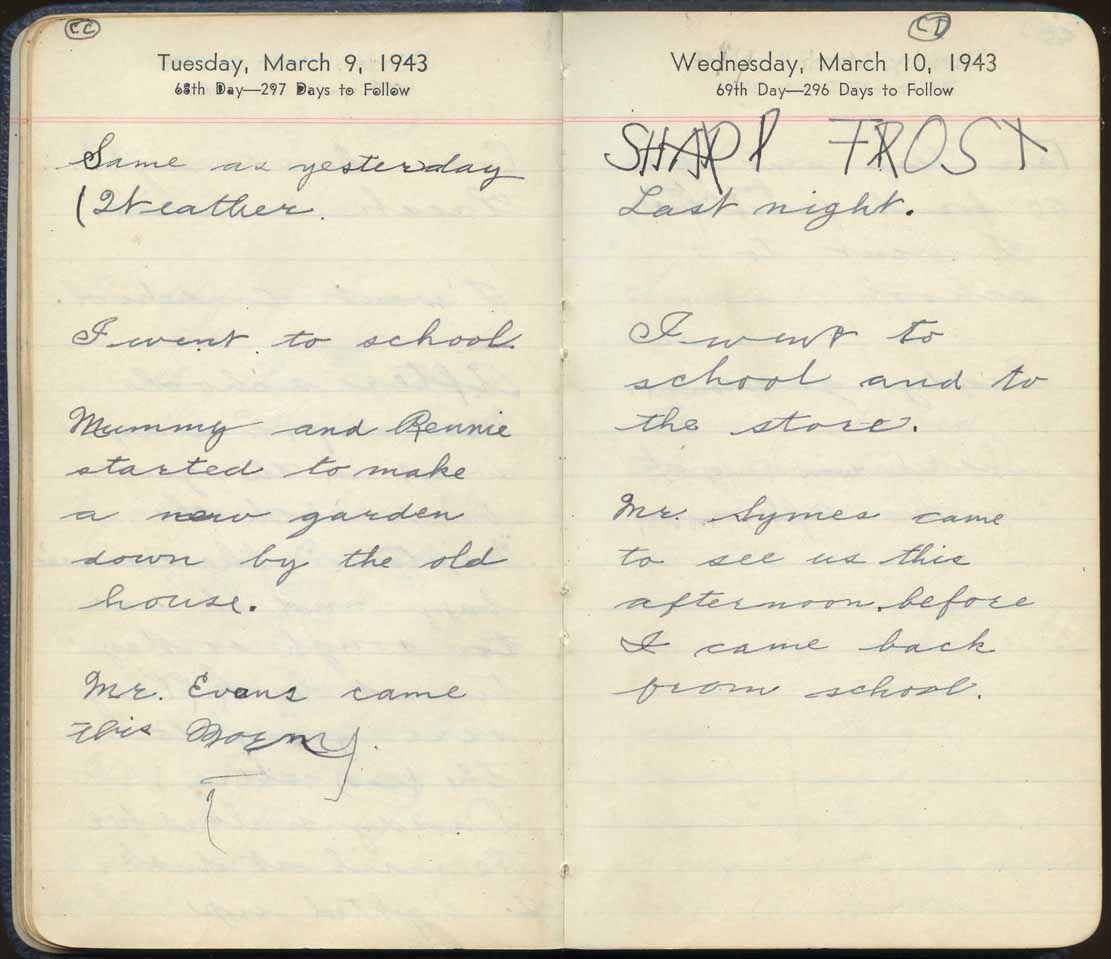 CC
Tuesday, March 9, 1943
68th Day—297 Days to Follow
Same as yesterday
(Weather.
I went to school.
Mummy and Rennie
started to make
a new garden
down by the old
house.
Mr. Evans came
this
CD
Wednesday, March 10, 1943
69th Day—296 Days to Follow
SHARP FROST
Last night.
I went to
school and to
the store.
Mr. Symes came
to see us this
afternoon, before
I came back
from school.